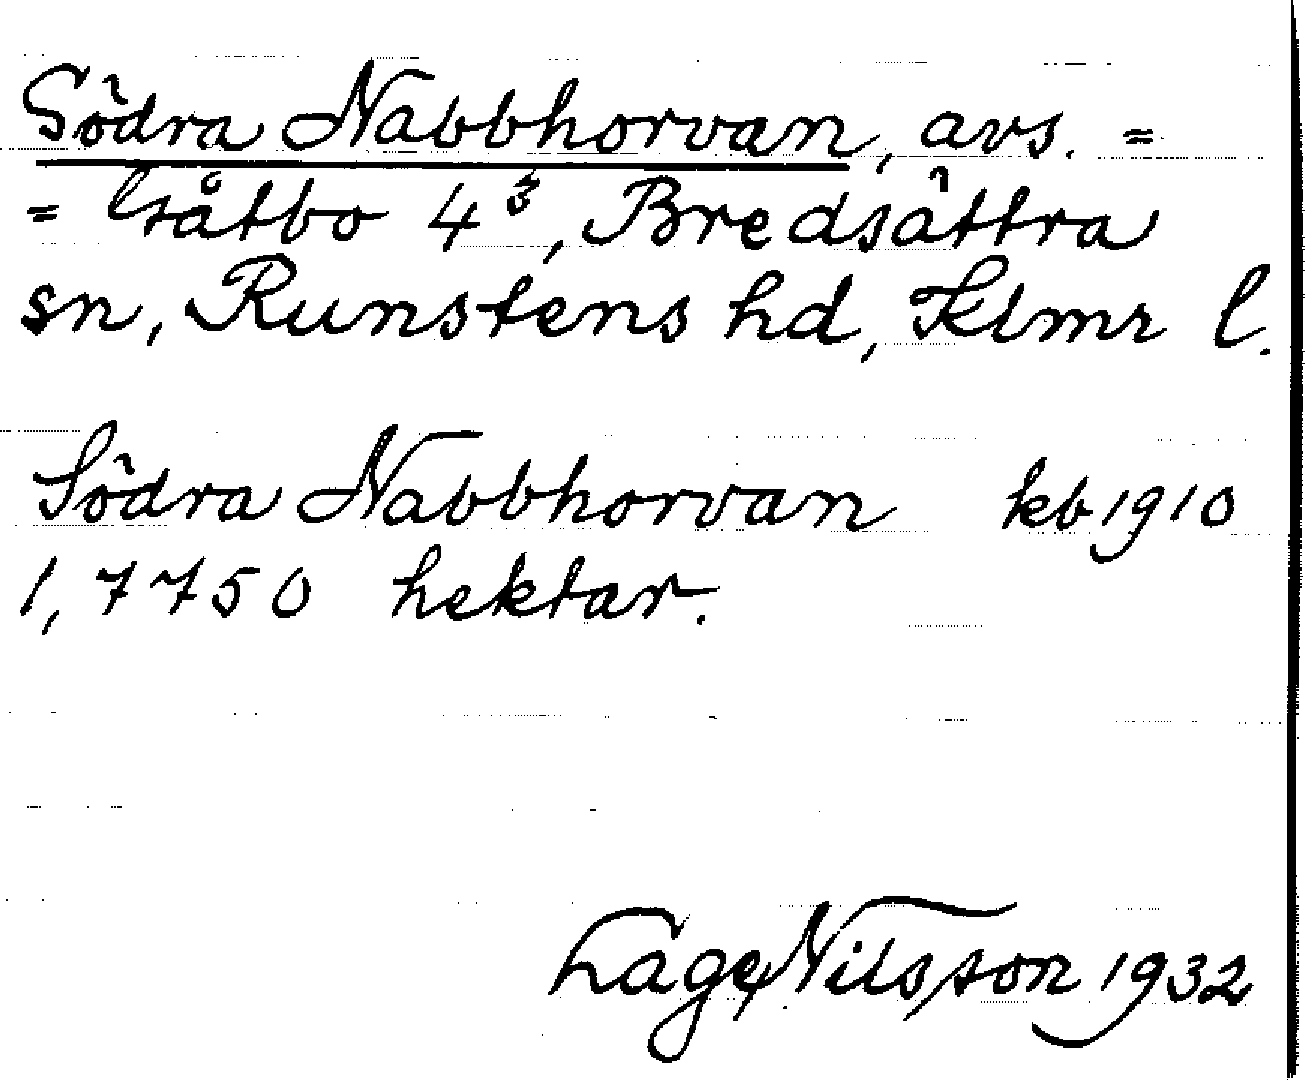 Södra Nabbhorvan, avs. =
= Gåtebo 4³, Bredsättra
sn, Runstens hd, Klmr l.
Södra Nabbhorvan kb 1910
1,7750 hektar.
Låge Nilsson 1932